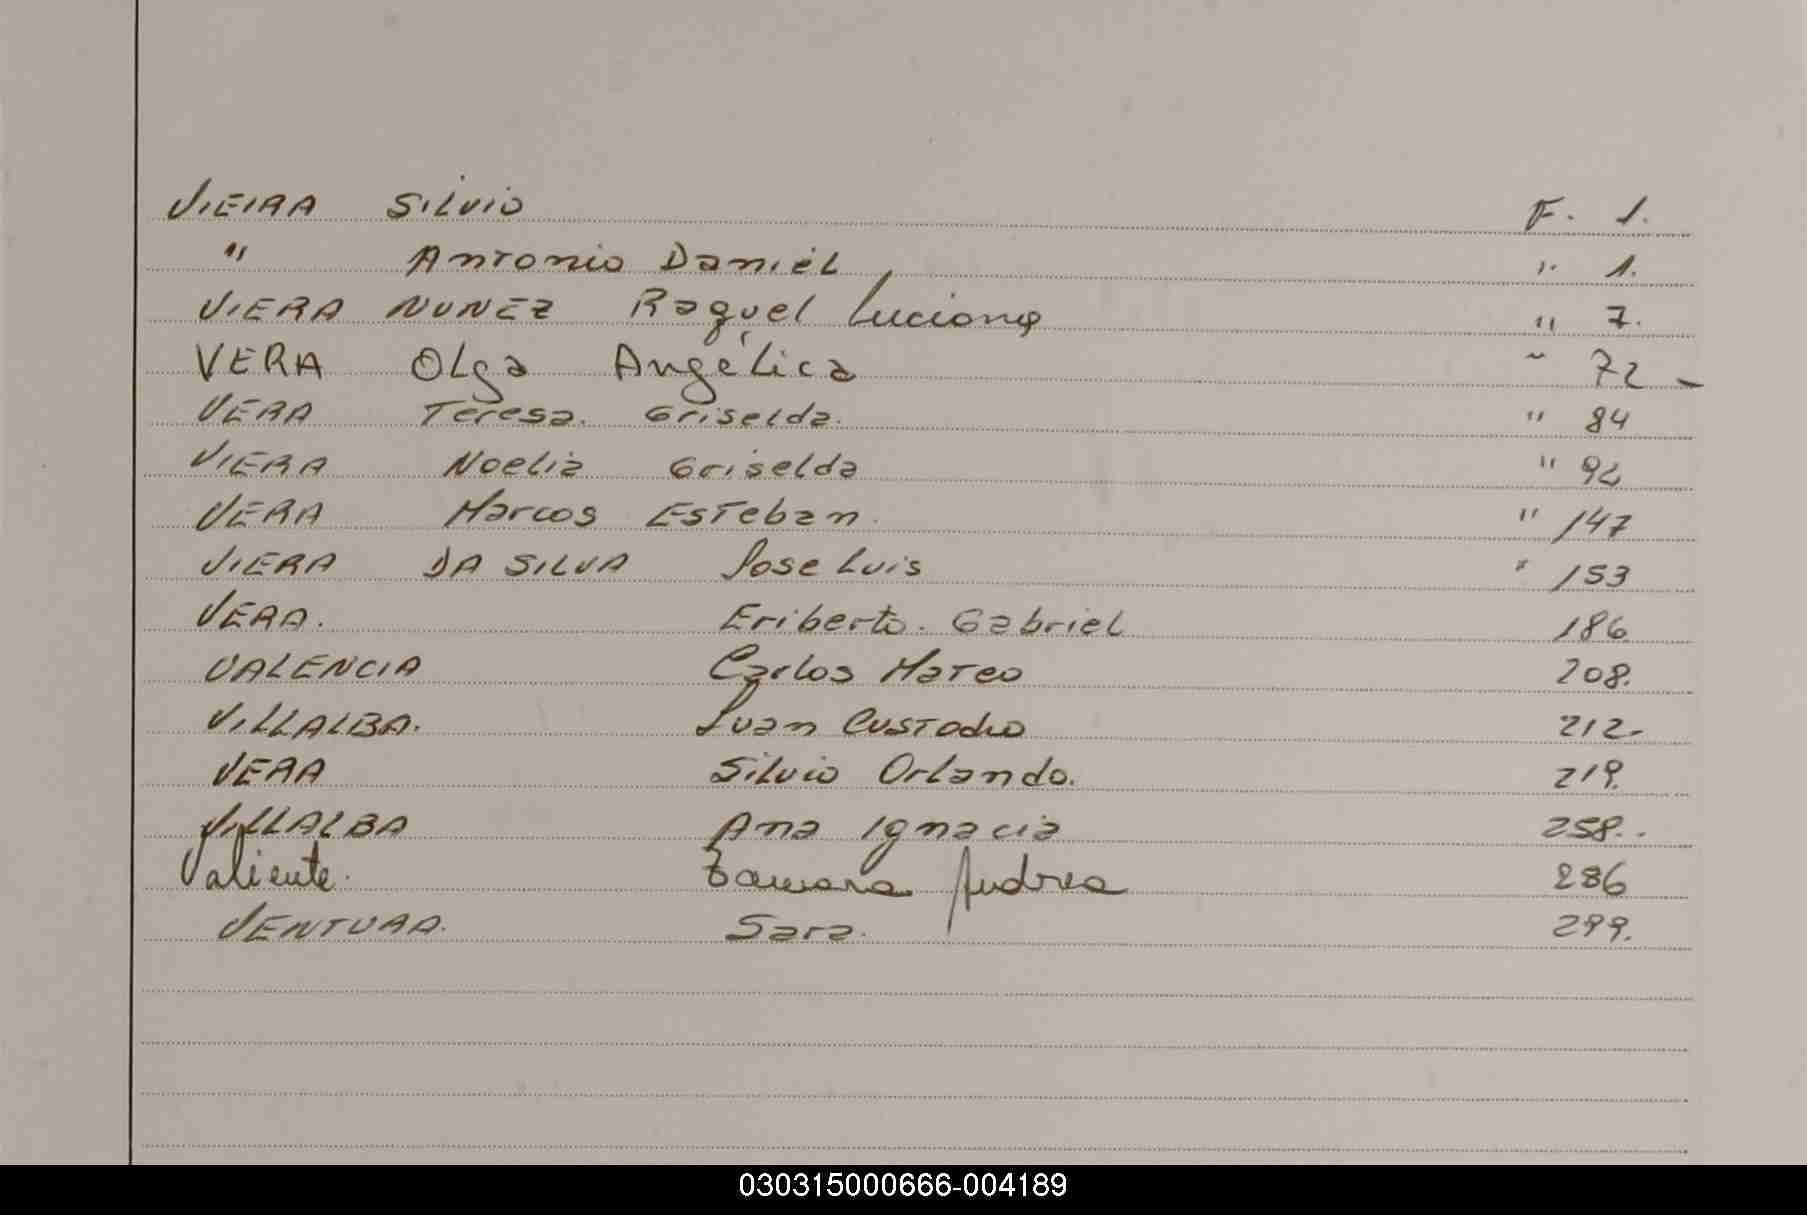 VIEIRA Silvio F. 1.
" Antonio Daniel " 1.
VIERA NUNEZ Raquel Luciana " 7.
VERA Olga Angélica " 72 -
VERA Teresa. Griselda. " 84
VIERA Noelia Griselda " 92
VERA Marcos Esteban. " 147
VIERA DA SILVA Jose Luis " 153
VERA. Eriberto. Gabriel 186
VALENCIA Carlos Mateo 208.
VILLALBA. Juan Custodio 212-
VERA Silvio Orlando. 219.
VILLALBA Ana Ignacia 258..
Valiente. Tamara Andrea 286
VENTURA. Sara. 299.
030315000666-004189